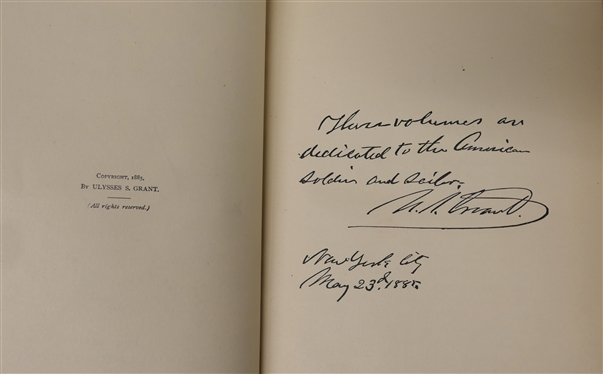 COPYRIGHT, 1885,
BY ULYSSES S. GRANT.
(All rights reserved.)
These volumes are
dedicated to the American
soldier and sailor.
U. S. Grant.
New York City
May 23d, 1885.